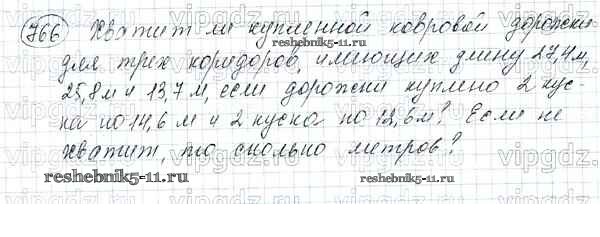 766 Хватит ли купленной ковровой дорожки
reshebnik5-11.ru
для трех коридоров, имеющих длину 27,4м,
25,8м и 13,7м, если дорожки куплено 2 кус-
ка по 14,6 м и 2 куска по 12,6м? Если не
хватит, то сколько метров?
reshebnik5-11.ru
reshebnik5-11.ru
vipgdz.ru